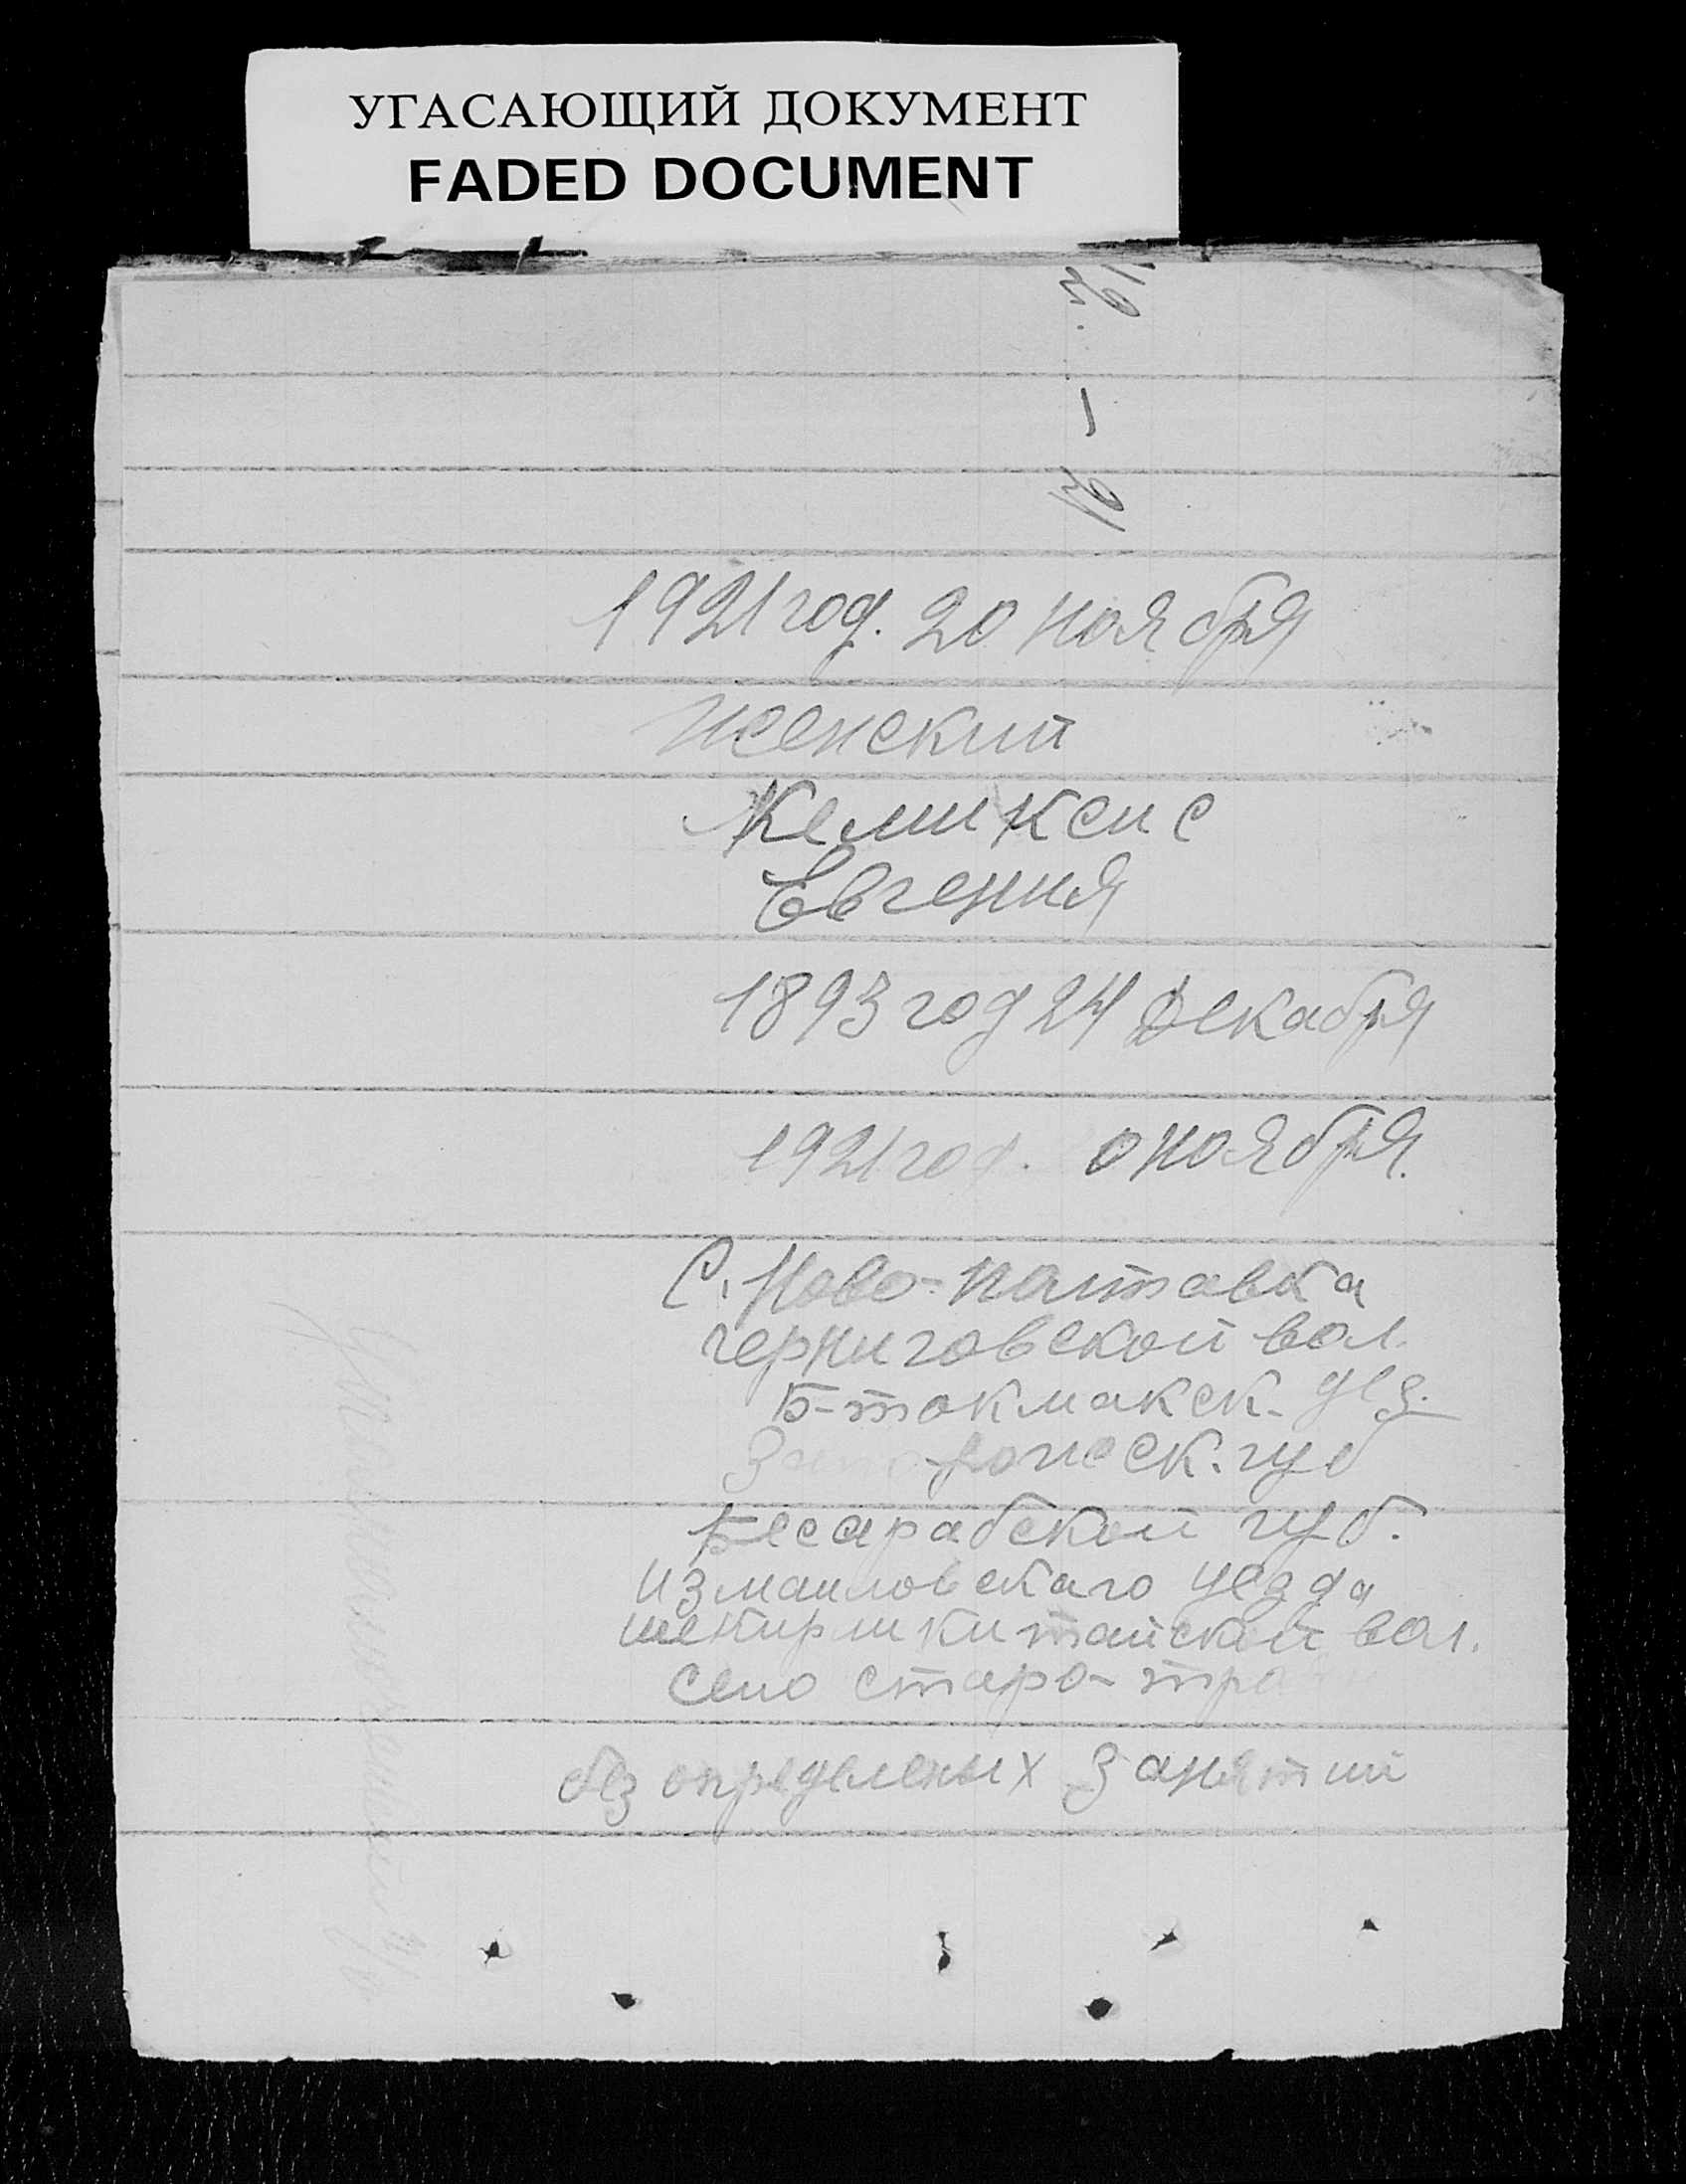 УГАСАЮЩИЙ ДОКУМЕНТ
FADED DOCUMENT
1921 год. 20 ноября
Женский
Кемиксис
Евгения
1893 год 24 декабря
1921 год. ноября.
С. Ново-Патавка
черниговской вол.
Б-токмакск. уез.
губ
Бесарабской губ.
Измаиловскаго уезда
китайской вол.
село старо-тро
без определеных занятий